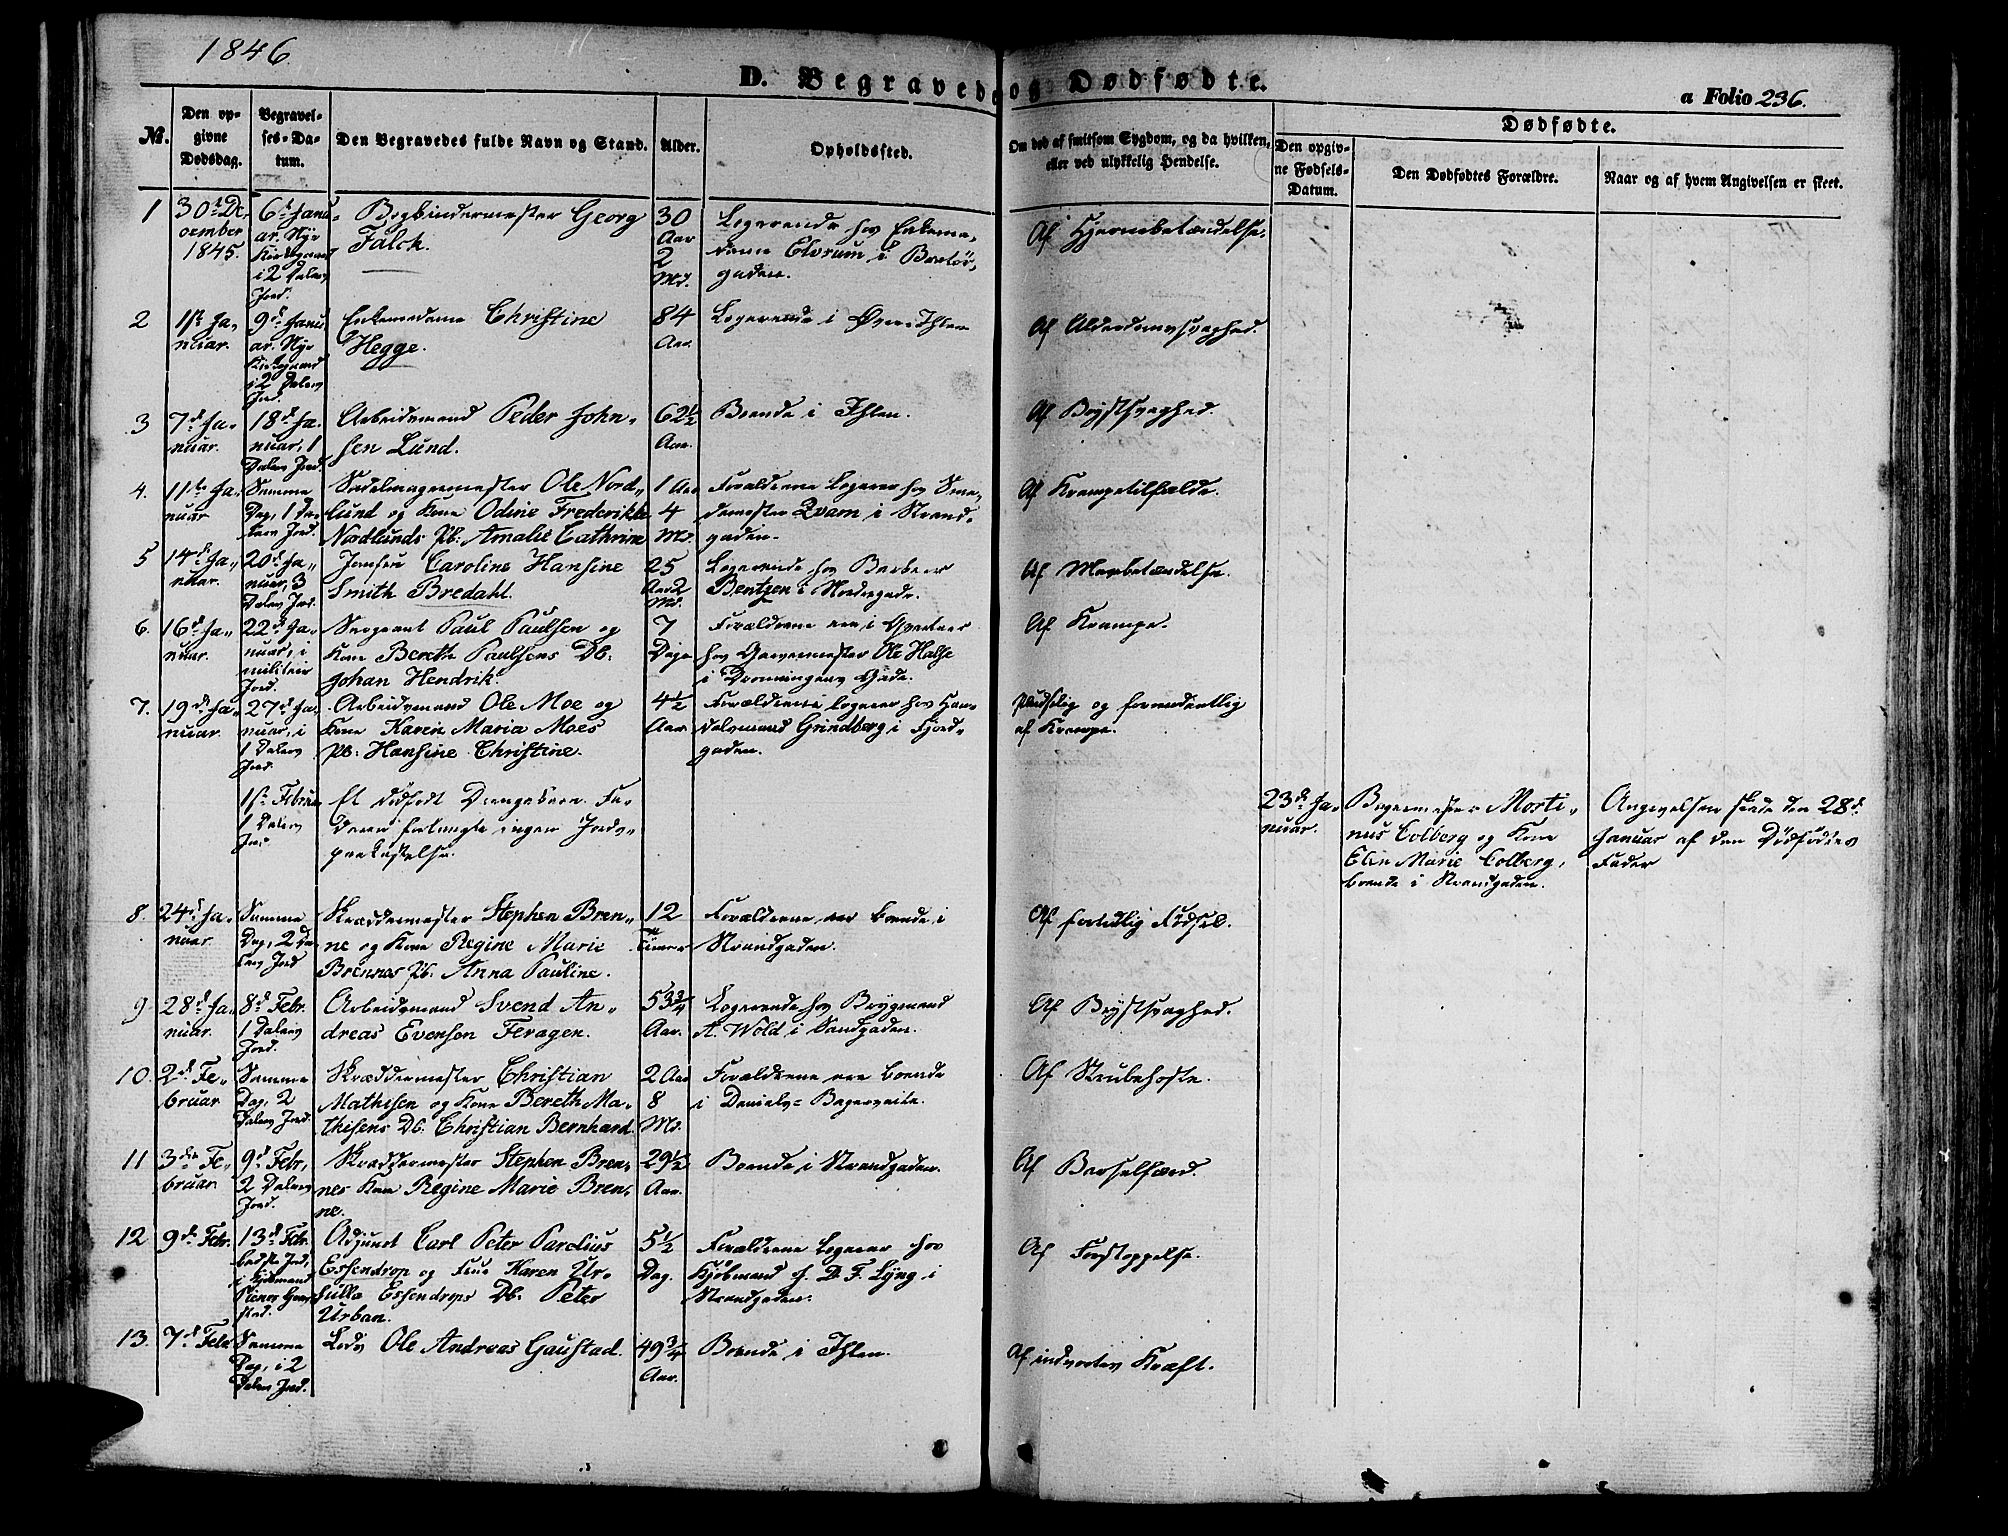 1846
D. Begravede og Dødfødte.
a Folio 236.
No.
Den opgivne Dødsdag.
Begravelses-Datum.
Den Begravedes fulde Navn og Stand.
Alder.
Opholdssted.
Om død af smitsom Sygdom, og da hvilken,
eller ved ulykkelig Hendelse.
Dødfødte.
Den opgivne Fødsels-Datum.
Den Dødfødtes Forældre.
Naar og af hvem Angivelsen er skeet.
1
30te December 1845.
6te Januar. Nye Kirkegaard i 2 Dalers Jord.
Bogbindermester Georg
Falch.
30 Aar 2 Md.
Logerende hos Enkema-
dame Elvrum i
gaden.
Af Hjernebetændelse.
2
1ste Januar.
9de Januar. Nye Kirkegaard i 2 Dalers Jord.
Enkemadame Christine
Hegge.
84 Aar.
Logerende i Øvre Ihlen
Af Alderdomssvaghed.
3
7de Januar.
18de Januar, 1 Dalers Jord.
Arbeidsmand Peder John-
sen Lund.
62½ Aar.
Boende i Ihlen.
Af Brystsvaghed.
4.
11te Januar
Samme Dag, 1 Dalers Jord.
Sadelmagermester Ole Nord-
lund og Kone Odine Frederikke
Nordlunds Pb: Amalie Cathrine
1 Aar 4 Md.
Forældrene Logerer hos Sme-
demester Qvam i Strand-
gaden.
Af Krampetilfælde.
5
14de Januar.
20de Januar, 3 Dalers Jord.
Jomfru Caroline Hansine
Smith Bredahl.
25 Aar 2 Md.
Logerende hos Barbeer
Bentzen i Nordregade.
Af Marvbetændelse.
6.
16de Januar.
22de Januar, i militair Jord.
Sergeant Paul Paulsen og
Kone Bereth Paulsens Db:
Johan Hendrik.
7 Dage
Forældrene ere i Qvarteer
hos Garvermester Ole Halse
i Dronningens Gade.
Af Krampe.
7.
19de Januar.
27de Januar, i 1 Dalers Jord.
Arbeidsmand Ole Moe og
Kone Karen Maria Moes
Pb: Hansine Christine.
4½ Aar.
Forældrene Logerer hos Han-
delsmand Grindberg i Fjord-
gaden.
Pludselig og formodentlig
af Krampe.
1ste Februar 1 Dalers Jord
Et dødfødt Drengebarn. Fa-
deren forlangte ingen Jords-
paakastelse.
23de Januar.
Bagermester Morti-
nus Colberg og Kone
Elin Marie Colberg,
boende i Strandgaden.
Angivelsen skede den 28de
Januar af den Dødfødtes
Fader
8.
24de Januar.
Samme Dag, 2 Dalers Jord
Skræddermester Stephen Bren-
ne og Kone Regine Marie
Brennes Pb. Anna Pauline.
12 Timer
Forældrene ere boende i
Strandgaden.
Af fortidlig Fødsel.
9
28de Januar.
8de Febr. 1 Dalers Jord.
Arbeidsmand Svend An-
dreas Evensen Feragen.
53¾ Aar.
Logerende hos Brygmand
A. Wold i Sandgaden.
Af Brystsvaghed.
10.
2de Februar
Samme Dag. 2 Dalers Jord.
Skræddermester Christian
Mathisen og Kone Bereth Ma-
thisens Db. Christian Bernhard.
2 Aar 8 Md.
Forældrene ere boende
i Daniels-Bagerveite.
Af Strubehoste.
11
3die Februar
9de Febr, 2 Dalers Jord.
Skræddermester Stephen Bren-
nes Kone Regine Marie Bren-
ne.
29½ Aar.
Boende i Strandgaden.
Af Barselfærd.
12
9de Febr.
13de Febr. bedste Jord,
Adjunct Carl Peter Parelius
Essendrop og Frue Karen Ur-
sulla Essendrops Db. Peter
Urban.
5½ Dag.
Forældrene Logerer hos
Kjøbmand D. F. Lyng i
Strandgaden.
Af Forstoppelse.
13.
7de Febr
Samme Dag, i 2 Dalers Jord.
Lods Ole Andreas Gaustad.
49¾ Aar.
Boende i Ihlen.
Af indvortes Kræft.